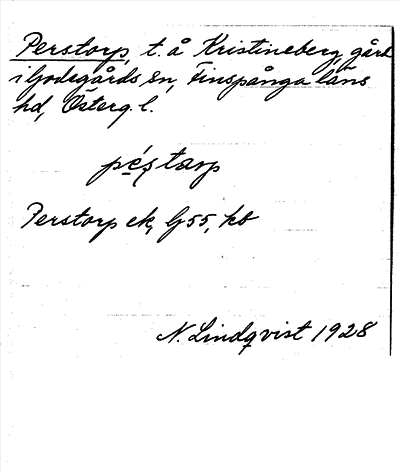 Perstorp, t. å Kristineberg, gård
i Godegårds sn, Finspånga läns
hd, Österg. l.
pę́ṣtarp
Perstorp ek, G55, kb
N. Lindqvist 1928